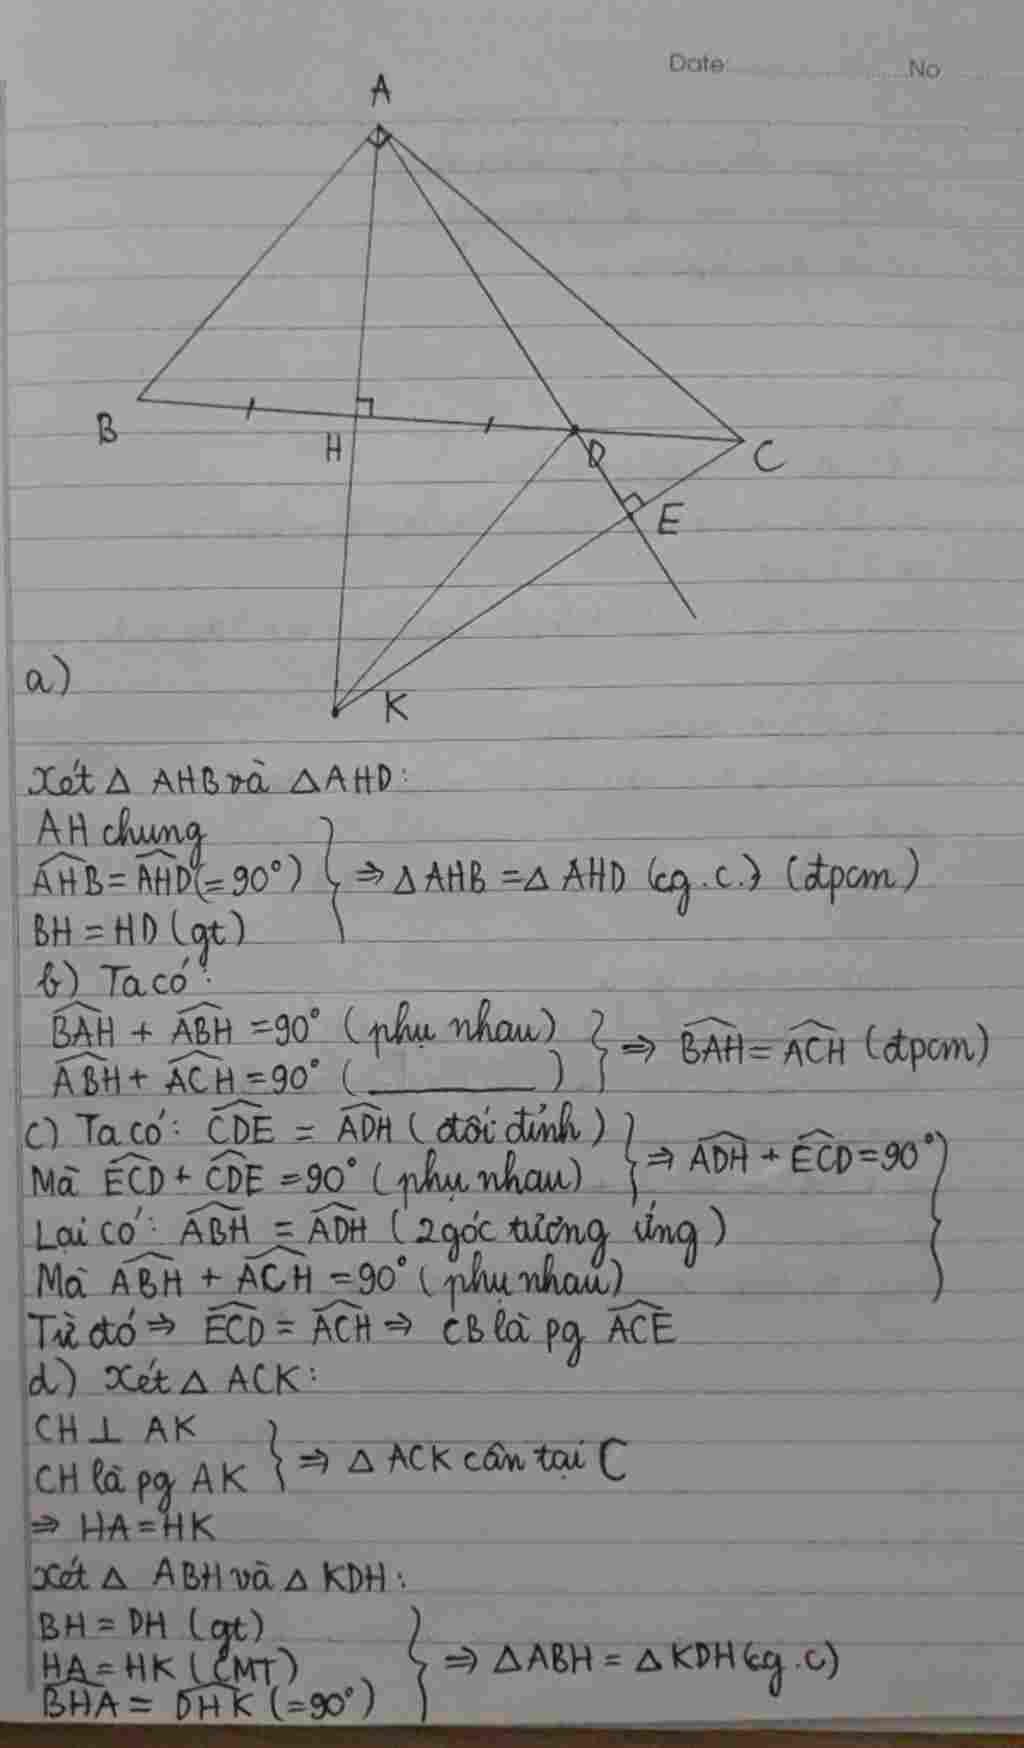 Date: No
A
B
H
D
C
E
K
a)
Xét △ AHB và △AHD:
AH chung
$\widehat{AHB}$ = $\widehat{AHD}$ (= 90°) ⇒ △AHB = △ AHD (cg.c.) (đpcm)
BH = HD (gt)
b) Ta có:
$\widehat{BAH}$ + $\widehat{ABH}$ = 90° (phụ nhau)
⇒ $\widehat{BAH}$ = $\widehat{ACH}$ (đpcm)
$\widehat{ABH}$ + $\widehat{ACH}$ = 90° (________)
c) Ta có: $\widehat{CDE}$ = $\widehat{ADH}$ (đối đỉnh)
⇒ $\widehat{ADH}$ + $\widehat{ECD}$ = 90°
Mà $\widehat{ECD}$ + $\widehat{CDE}$ = 90° (phụ nhau)
Lại có: $\widehat{ABH}$ = $\widehat{ADH}$ (2 góc tương ứng)
Mà $\widehat{ABH}$ + $\widehat{ACH}$ = 90° (phụ nhau)
Từ đó ⇒ $\widehat{ECD}$ = $\widehat{ACH}$ ⇒ CB là pg $\widehat{ACE}$
d) Xét △ ACK:
CH ⊥ AK
⇒ △ ACK cân tại C
CH là pg AK
⇒ HA = HK
Xét △ ABH và △ KDH:
BH = DH (gt)
HA = HK (CMT) ⇒ △ABH = △KDH (cg.c)
$\widehat{BHA}$ = $\widehat{DHK}$ (= 90°)